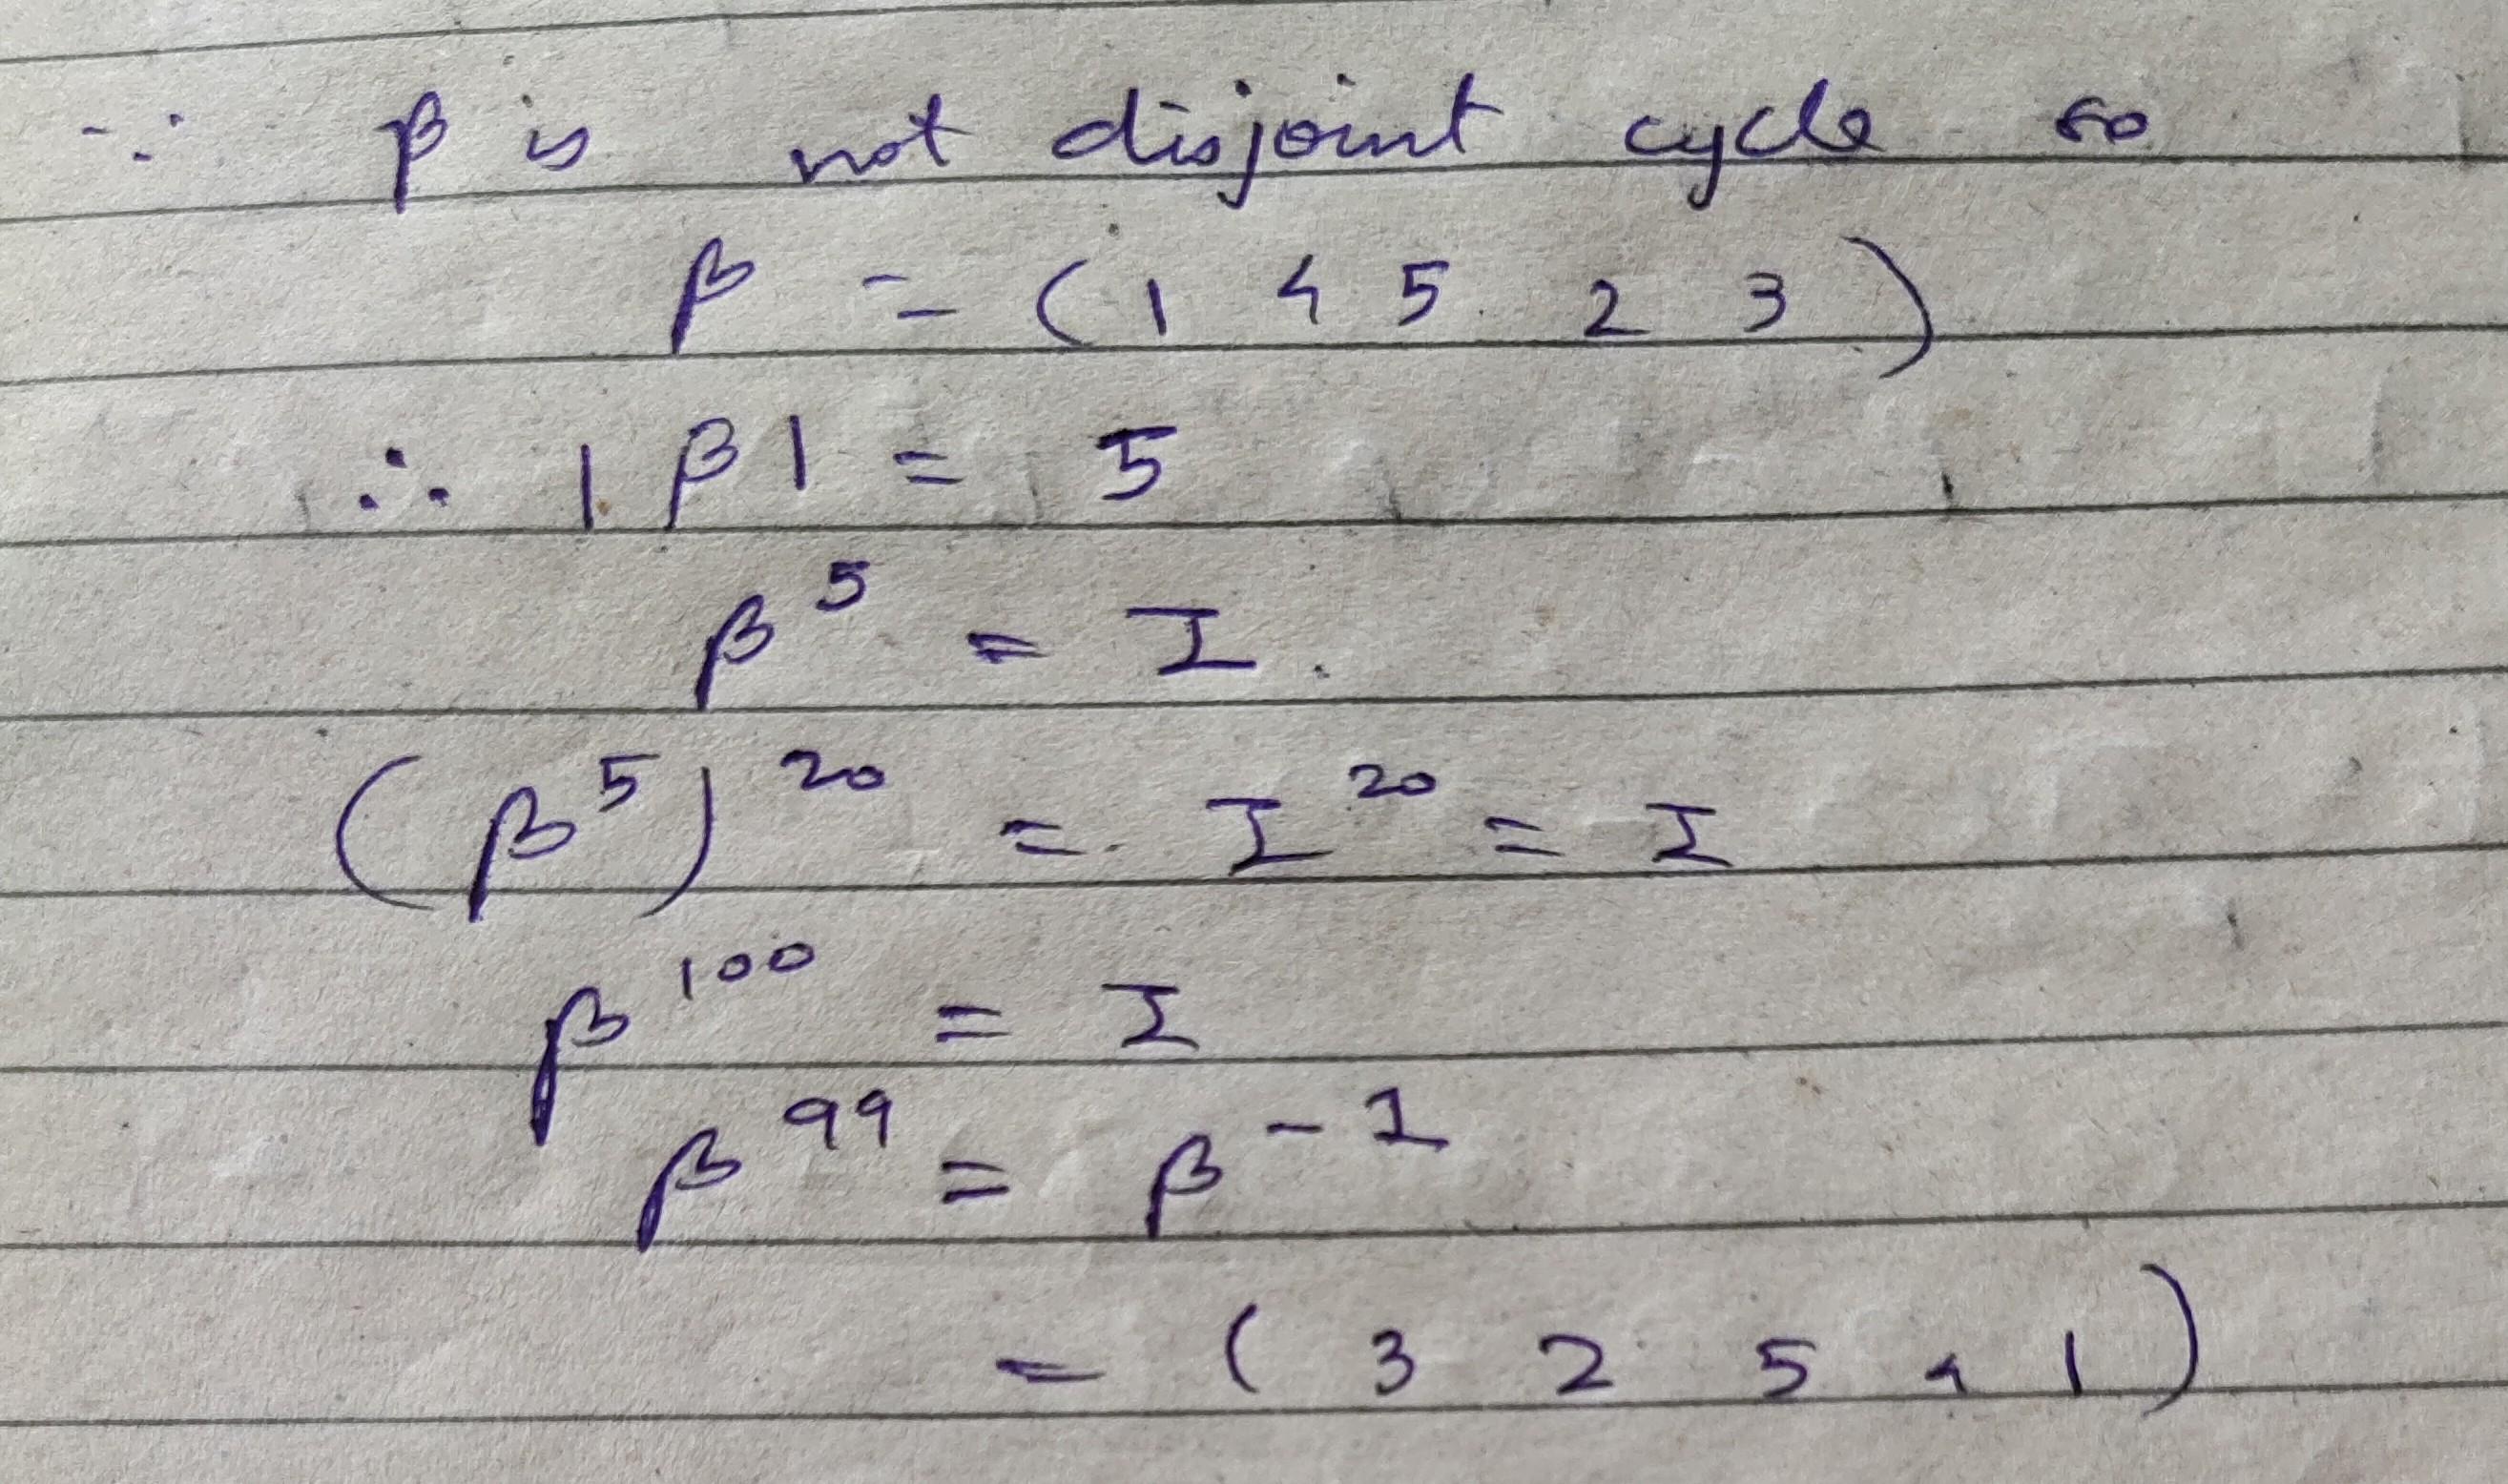 ∵ β is not disjoint cycle so
β = ( 1 4 5 2 3 )
∴ |β| = 5
β⁵ = I.
(β⁵)²⁰ = I²⁰ = I
β¹⁰⁰ = I
β⁹⁹ = β⁻¹
= ( 3 2 5 4 1 )